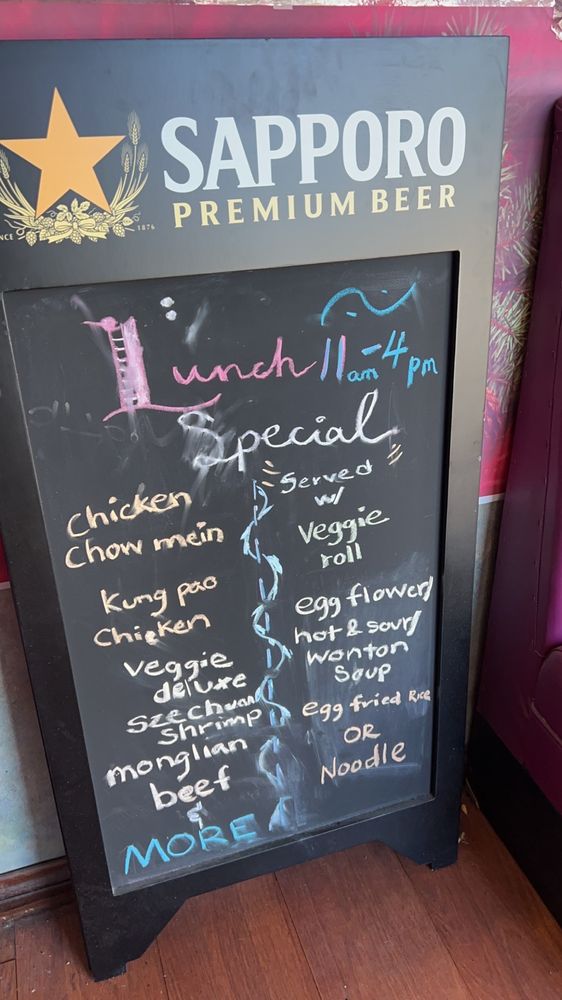 SAPPORO
PREMIUM BEER
1876
Lunch 11am-4pm
Special
Chicken
Chow mein
Kung pao
Chicken
veggie
deluxe
Szechuan
Shrimp
monglian
beef
&
MORE
Served
w/
Veggie
roll
egg flower/
hot & sour/
wonton
Soup
egg fried Rice
OR
Noodle